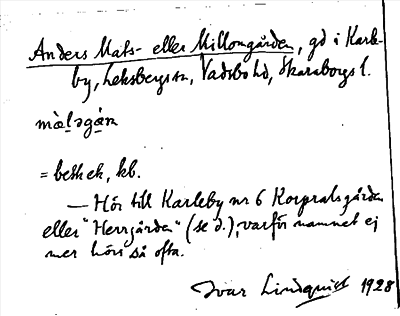 Anders Mats- eller Millomgården, gd i Karle-
by, Leksbergs sn, Vadsbo hd, Skaraborgs l.
= beth ek, kb.
— Hör till Karleby nr 6 Korpralsgården
eller "Herrgården" (se d.), varför namnet ej
mer höres så ofta.
Ivar Lindquist 1928